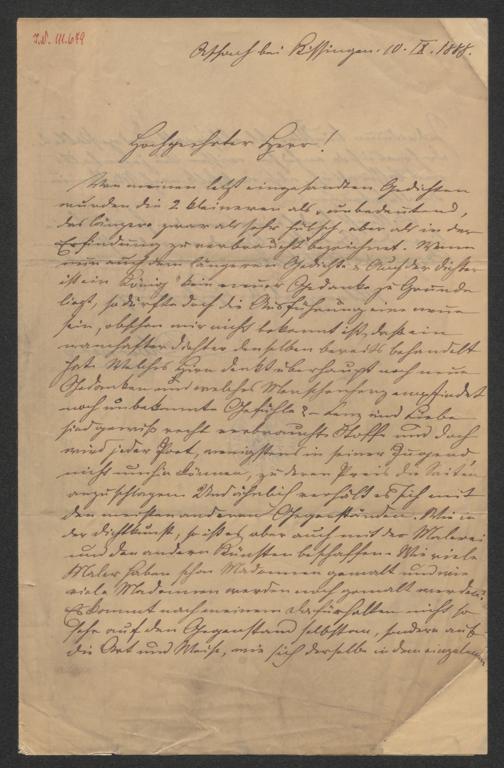 I.N. 111.649
Aschach bei Kissingen. 10. IX. 1888.
Hochgeehrter Herr!
Von meinen letzt eingesandten Gedichten
wurden die 2 kleineren als „unbedeutend,
das längere zwar als sehr hübsch, aber als in der
Erfindung zu verbraucht bezeichnet. Wenn
nun auch dem längeren Gedichte „Auch der Dichter
ist ein König" kein neuer Gedanke zu Grunde
liegt, so dürfte doch die Ausführung eine neue
sein, obschon mir nicht bekannt ist, daß ein
namhafter Dichter denselben bereits behandelt
hat. Welches Hirn denkt überhaupt noch neue
Gedanken und welches Menschenherz empfindet
noch unbekannte Gefühle? – Lenz und Liebe
sind gewiß recht verbrauchte Stoffe und doch
wird jeder Poet, wenigstens in seiner Jugend
nicht umhin können, zu deren Preis die Saiten
anzuschlagen. Und ähnlich verhält es sich mit
den meisten anderen Gegenständen. Wie in
der Dichtkunst, so ist es aber auch mit der Malerei
und den andern Künsten beschaffen. Wie viele
Maler haben schon Madonnen gemalt und wie
viele Madonnen werden noch gemalt werden!
Es kommt nach meinem Dafürhalten nicht so
sehr auf den Gegenstand selbst an, sondern auf
die Art und Weise, wie sich derselbe in dem einzelnen